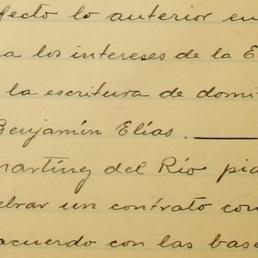 fecto lo anterior en
a los intereses de la E
la escritura de domi
Benjamín Elías.
martínz del Río pid
ebrar un contrato con
acuerdo con las base